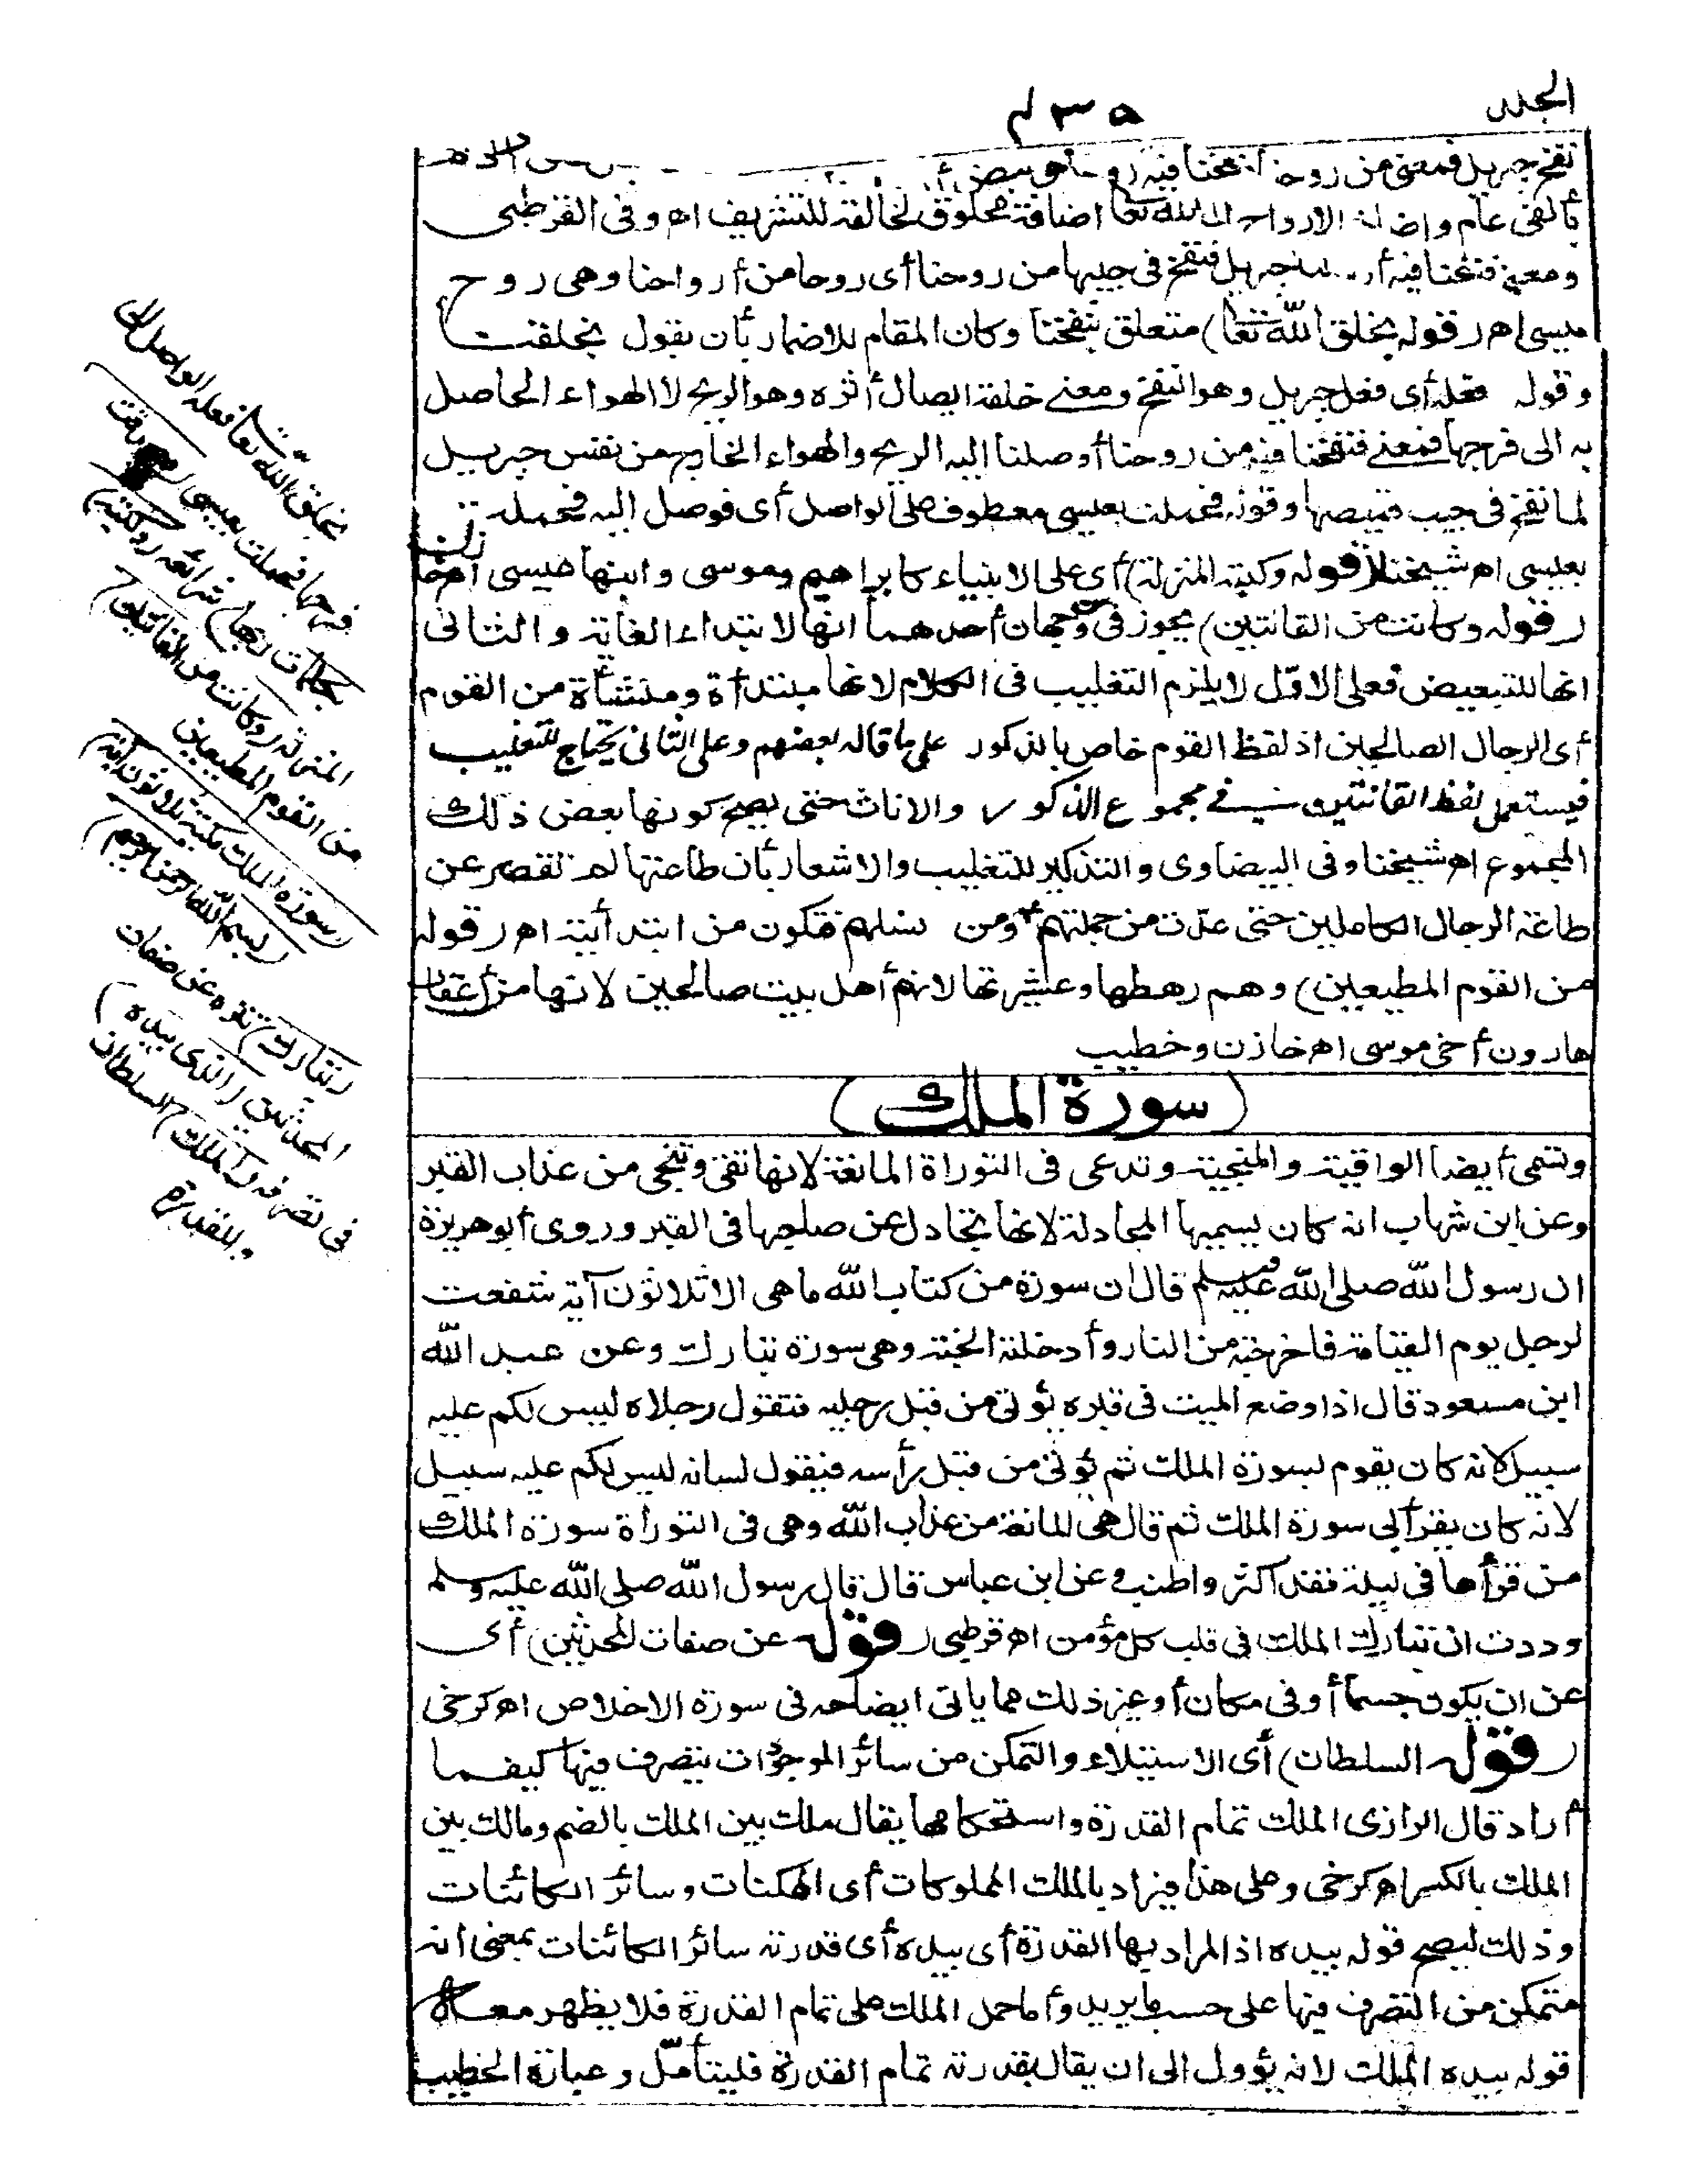 الجلد
٣٥
نفخ جبريل فمعنى من روحنا
عام الارواح الى الله تعا اضافة مخلوق لخالقه للتشريف اه وفى القرطبى
ومعنى فنفخنا فيه جبريل فنفخ فى جيبها من روحنا أى روحا من أرواحنا وهى روح
عيسى اه (قوله بخلق الله تعا) متعلق بنفخنا وكان المقام للاضمار بأن يقول بخلقنا
وقوله فعله أى فعل جبريل وهو النفخ ومعنى خلقه ايصال أثره وهو الريح لا الهواء الحاصل
به الى فرجها فمعنى فنفخنا فيه من روحنا أوصلنا اليه الريح والهواء الخارج من نفس جبريل
لما نفخ فى جيب قميصها وقوله فحملت بعيسى معطوف على الواصل أى فوصل اليه فحملت
بعيسى اه شيخنا (قوله وكتبه المنزلة) أى على الانبياء كابراهيم وموسى وابنها عيسى اه خازن
(قوله وكانت من القانتين) يجوز فى وجهان أحدهما انها لابتداء الغاية والثانى
انها للتبعيض فعلى الاول لا يلزم التغليب فى الكلام لانها مبتدأة ومنشأة من القوم
أى الرجال الصالحين اذ لفظ القوم خاص بالذكور على ما قاله بعضهم وعلى الثانى يحتاج للتغليب
فيستعمل لفظ القانتين فى مجموع الذكور والاناث حتى يصح كونها بعض ذلك
المجموع اه شيخنا وفى البيضاوى والتذكير للتغليب والاشعار بأن طاعتها لم تقصر عن
طاعة الرجال الكاملين حتى عدت من جملتهم ومن نسلهم فتكون من ابتدائية اه (قوله
من القوم المطيعين) وهم رهطها وعشيرتها لانهم أهل بيت صالحين لانها من أعقاب
هارون أخى موسى اه خازن وخطيب
(سورة الملك)
وتسمى أيضا الواقية والمنجية وتدعى فى التوراة المانعة لانها تقى وتنجى من عذاب القبر
وعن ابن شهاب انه كان يسميها المجادلة لانها تجادل عن صاحبها فى القبر وروى أبو هريرة
ان رسول الله صلى الله عليه وسلم قال ان سورة من كتاب الله ما هى الا ثلاثون آية شفعت
لرجل يوم القيامة فاخرجته من النار وأدخلته الجنة وهى سورة تبارك وعن عبد الله
ابن مسعود قال اذا وضع الميت فى قبره يؤتى من قبل رجليه فتقول رجلاه ليس لكم عليه
سبيل لانه كان يقوم بسورة الملك ثم يؤتى من قبل رأسه فيقول لسانه ليس لكم عليه سبيل
لانه كان يقرأ بى سورة الملك ثم قال هى المانعة من عذاب الله وهى فى التوراة سورة الملك
من قرأها فى ليلة فقد أكثر واطنب وعن ابن عباس قال قال رسول الله صلى الله عليه وسلم
وددت ان تبارك الملك فى قلب كل مؤمن اه قرطبى (قوله عن صفات المحدثين) أى
عن ان يكون جسما أو فى مكان أو غير ذلك مما ياتى ايضاحه فى سورة الاخلاص اه كرخى
(قوله السلطان) أى الاستيلاء والتمكن من سائر الموجودات يتصرف فيها كيفما
أراد قال الرازى الملك تمام القدرة واستحكامها يقال ملك بين الملك بالضم ومالك بين
الملك بالكسر اه كرخى وعلى هذا فيراد بالملك المملوكات أى الممكنات وسائر الكائنات
وذلك ليصح قوله بيده اذ المراد بها القدرة أى بيده أى قدرته سائر الكائنات بمعنى انه
متمكن من التصرف فيها على حسب ما يريد وأما حمل الملك على تمام القدرة فلا يظهر معه
قوله بيده الملك لانه يؤول الى ان يقال بقدرته تمام القدرة فليتأمل وعبارة الخطيب
بخلق الله تعا فعله الواصل الى
فرجها فحملت بعيسى
بكلمات ربها) شرائعه (وكتبه)
المنزلة (وكانت من القانتين)
من القوم المطيعين
(سورة الملك مكية ثلاثون آية)
(بسم الله الرحمن الرحيم)
(تبارك) تنزه عن صفات
المحدثين (الذى بيده)
فى تصرفه (الملك) السلطان
والقدرة